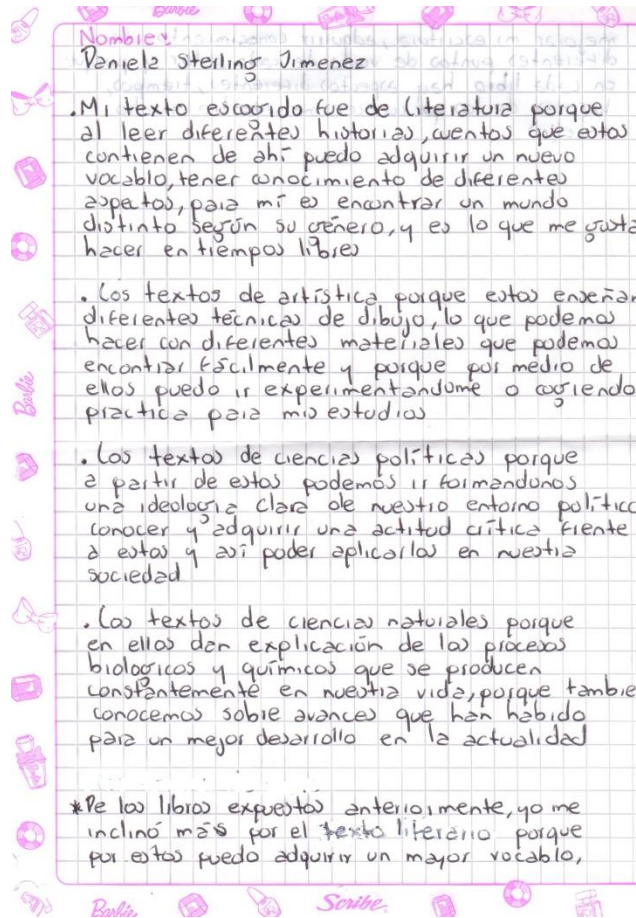 Barbie
Nombre:
Daniela Sterling Jimenez
. Mi texto escogido fue de literatura porque
al leer diferentes historias, cuentos que estos
contienen de ahí puedo adquirir un nuevo
vocablo, tener conocimiento de diferentes
aspectos, para mí es encontrar un mundo
distinto según su género, y es lo que me gusta
hacer en tiempos libres
. Los textos de artística porque estos enseñan
diferentes técnicas de dibujo, lo que podemos
hacer con diferentes materiales que podemos
encontrar fácilmente y porque por medio de
ellos puedo ir experimentandome o cogiendo
practica para mis estudios
. Los textos de ciencias políticas porque
a partir de estos podemos ir formandonos
una ideología clara de nuestro entorno político
conocer y adquirir una actitud crítica frente
a estos y así poder aplicarlos en nuestra
sociedad
. Los textos de ciencias naturales porque
en ellos dan explicación de los procesos
biologicos y químicos que se producen
constantemente en nuestra vida, porque tambie
conocemos sobre avances que han habido
para un mejor desarrollo en la actualidad
*De los libros expuestos anteriormente, yo me
inclinó más por el texto literario porque
por estos puedo adquirir un mayor vocablo,
Barbie
Barbie Scribe